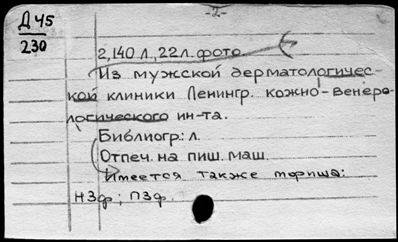 Д 45
230
-2-
2, 140 л., 22 л. фото.
Из мужской дерматологичес-
кой клиники Ленингр. кожно-венеро-
логического ин-та.
Библиогр: л.
Отпеч. на пиш. маш.
Имеется также
НЗф; ПЗф.